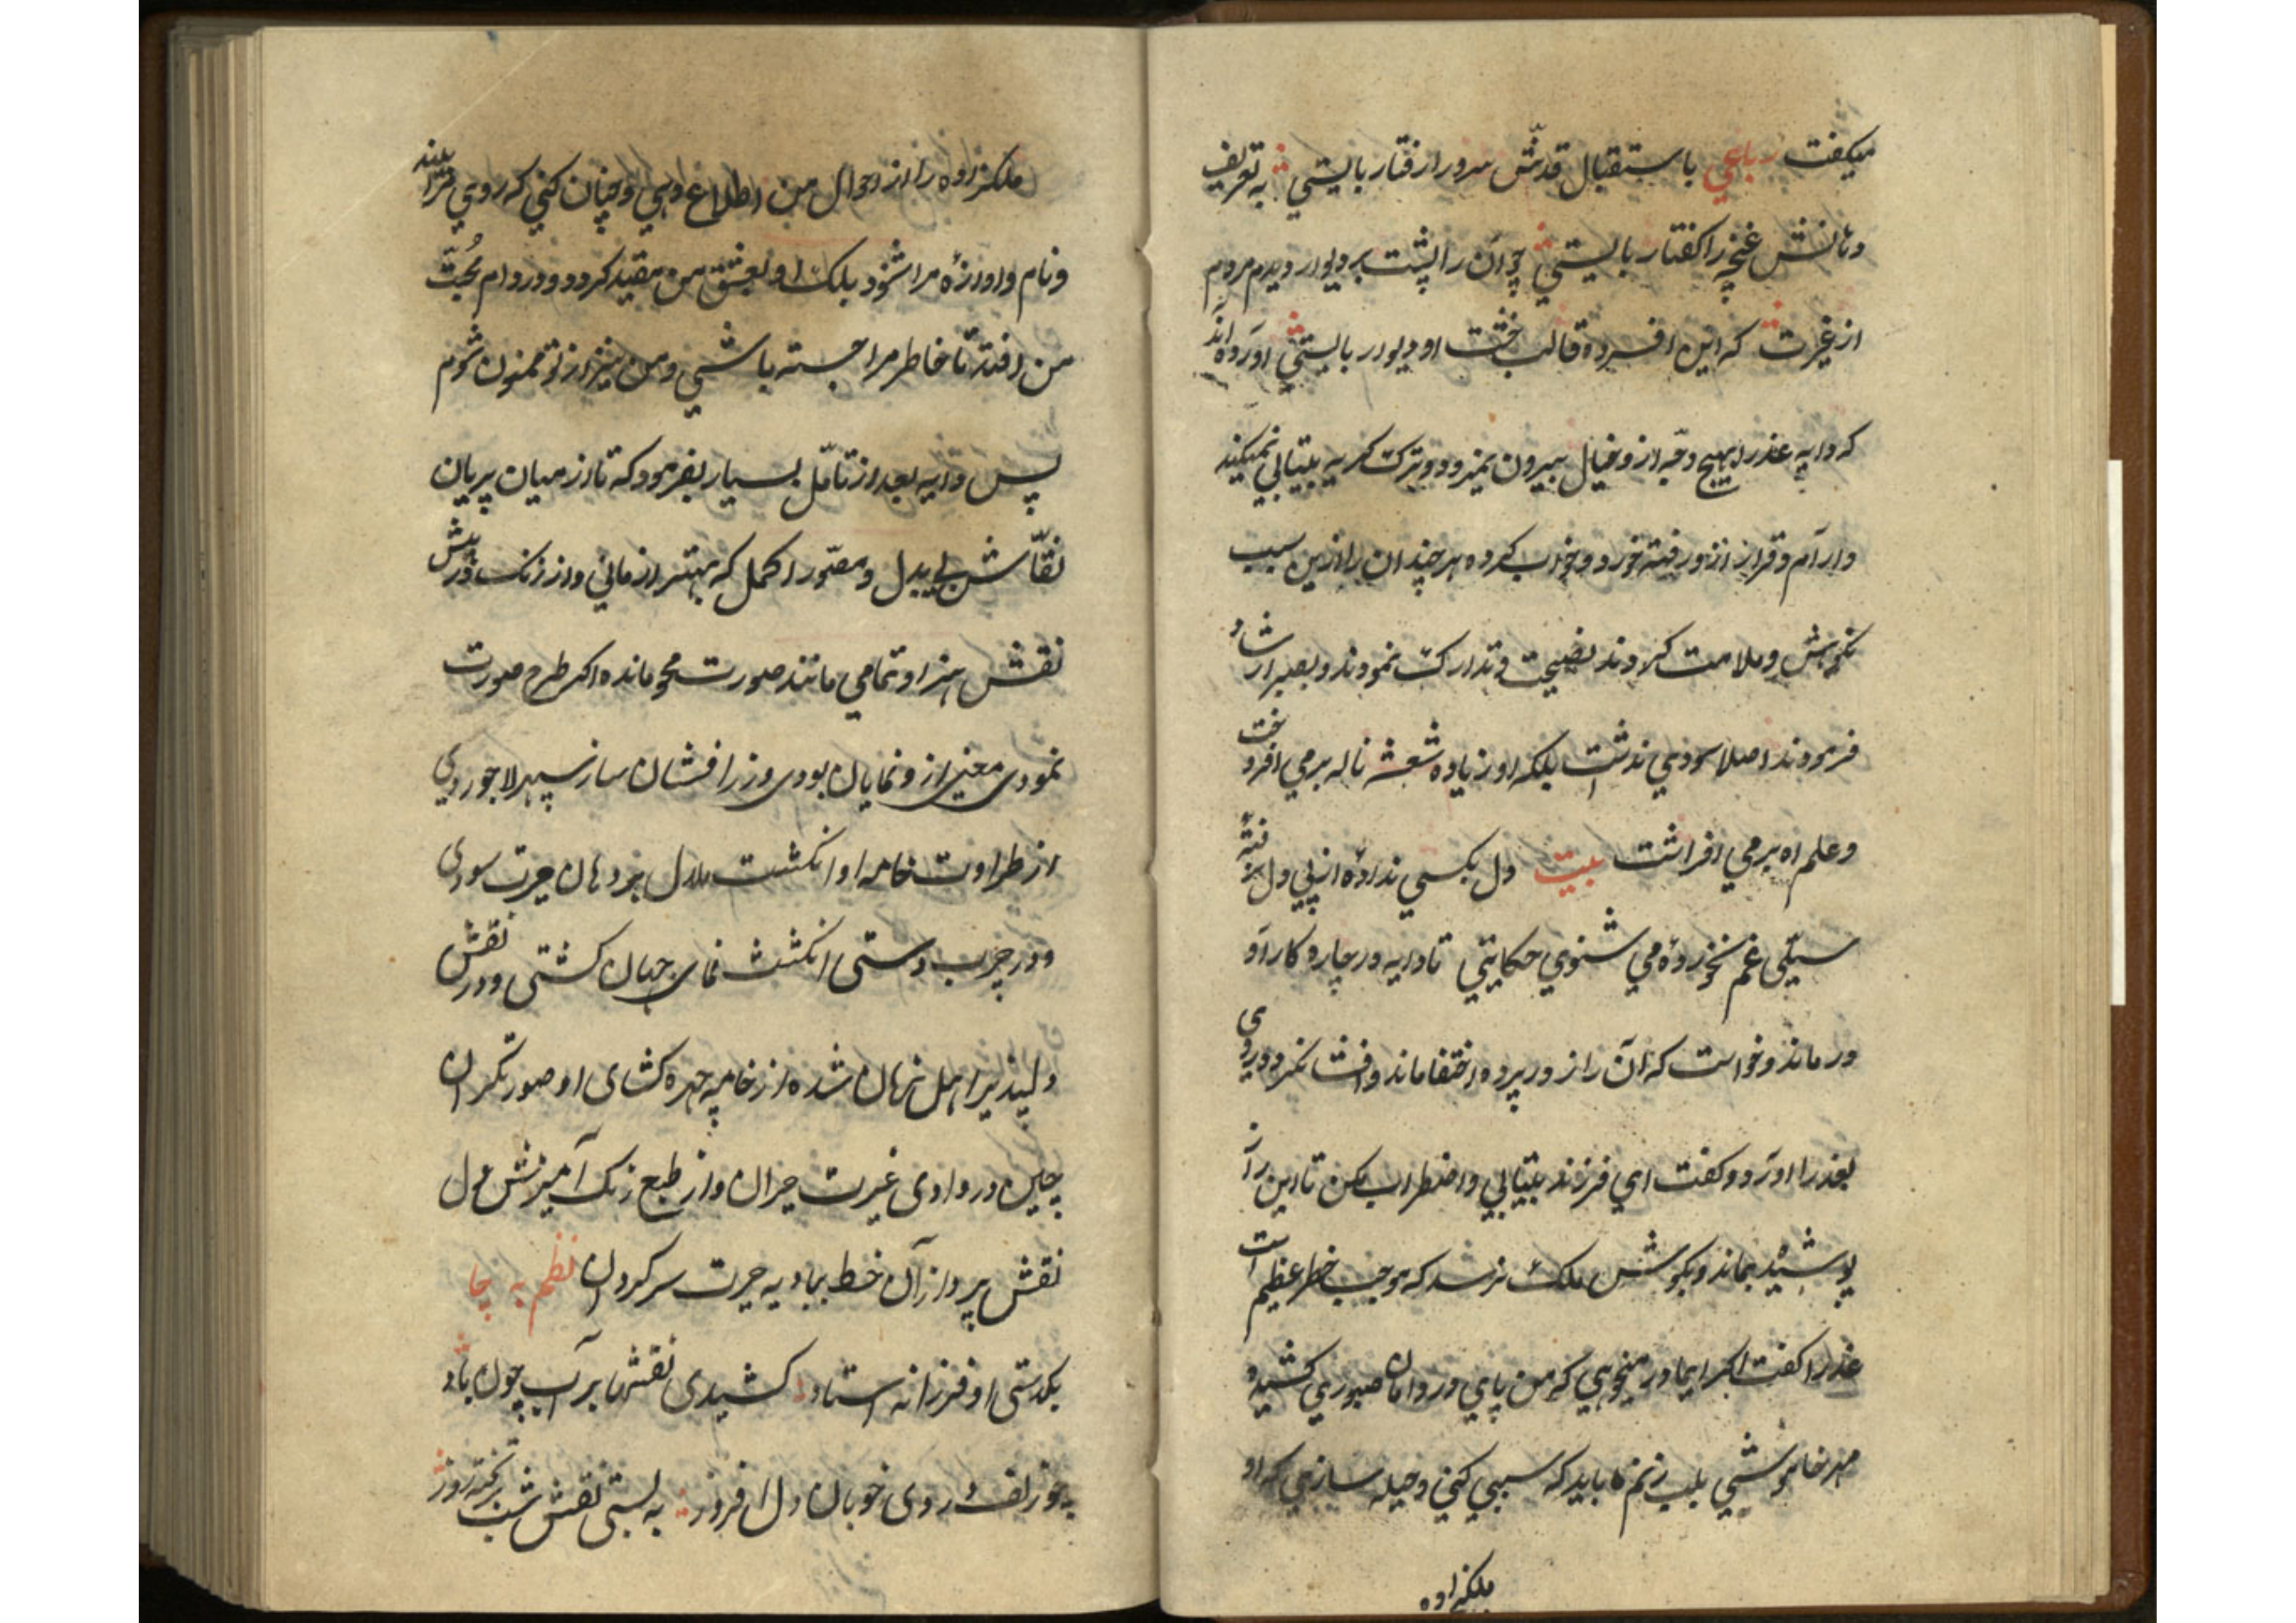 میکفت رباعي باستقبال قدش سرو را رفتار بایستي به تعریف
دهانش غنچه را کفتار بایستي چو آن را پشت بر دیوار دیدم مردم
از غیرت که این افسرده قالب خشت او دیوار بایستي آورده اند
که دایه عذرا بهیچ وجه از و خیال بیرون نمیرود و ترک کریه بیتابي نمیکند
و آرام و قرار ازو رفته خورد و خواب کرده هر چند آن را ازین سبب
نکوهش و ملامت کردند نصیحت و تدارک نمودند و بصبر ارشاد
فرمودند اصلا سودي نداشت بلکه او زیاده شعشه ناله برمي افروخت
و علم اه برمي افراشت بیت دل بکسي نداده از پي دل نرفته
سیلي غم نخورده مي شنوي حکایتي تا دایه در چاره کار او
درماند و خواست که آن راز در پرده اختفا ماند و افشا نکردد روي
بعذرا آورد و کفت اي فرزند بیتابي و اضطراب مکن تا این راز
پوشیده بماند و بکوش ملک نرسد که موجب خطر عظیم است
عذرا کفت اکر ایمادر میخواهي که من پاي در دامان صبوري کشیده
مهر خاموشي بلب زنم باید که سببي کني و حیله سازي که او
ملکزاده
ملکزاده را از احوال من اطلاع دهي و چنان کني که روي مرا بیند
و نام و آوازه مرا شنود بلک او بعشق من مقید کردد و در دام محبت
من افتد تا خاطر مرا جسته باشي و من نیز از تو ممنون شوم
پس دایه بعد از تامّل بسیار بفرمود که تا از میان پریان
نقّاش بي بدل و مصوّر اکمل که بهتر از ماني و ارژنک در پیش
نقش هنر او تمامي مانند صورت محو مانده اکر طرح صورت
نمودی معني از و نمایان بودی و زرافشان ساز سپهر لاجوردي
از طراوت خامه او انکشت هلال بر دهان حیرت سودی
و در چرب دستی انکشت نمای جهان کشتی و در نقش
دلپذیر اهل نهان شده از خامه چهره کشای او صورتکران
چین در وادی غیرت حیران و از طبع رنک آمیزش دل
نقش پرداز آن خط ببادیه حیرت سرکردان نظم به چا
بکدستی او فرزانه استاد کشیدی نقشها بر آب چون باد
چو زلف و روی خوبان دل افروز به بستی نقش شب بر تخته روز